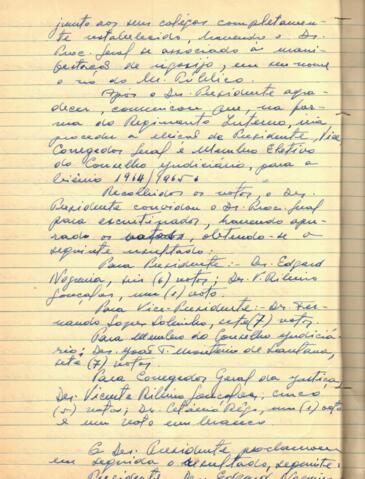 junto aos seus colegas completamen-
te restabelecido, havendo o Dr.
Proc. Geral se associado às mani-
festações de regosijo, em seu nome
e no do M. Público.
Após o Des. Presidente agra-
decer, comunicou que, na for-
ma do Regimento Interno, iria
proceder à eleição do Presidente, Vice,
Corregedor Geral e Membro Eletivo
do Conselho Judiciário, para o
biênio 1964/1965.
Recolhidos os votos, o Des.
Presidente convidou o Dr. Proc. Geral
para escrutinador, havendo apu-
rado os votados, obtendo-se o
seguinte resultado:
Para Presidente:- Des. Edgard
Nogueira, seis (6) votos; Des. V. Ribeiro
Gonçalves, um (1) voto.
Para Vice-Presidente:- Des. Fer-
nando Lopes Sobrinho, sete (7) votos.
Para Membro do Conselho Judiciá-
rio; Des. João T. Monteiro de Santana,
sete (7) votos.
Para Corregedor Geral da Justiça,
Des. Vicente Ribeiro Gonçalves, cinco
(5) votos; Des. um (1) voto
e um voto em branco.
O Des. Presidente proclamou
em seguida o resultado, seguinte:
Presidente Des. Edgard Nogueira